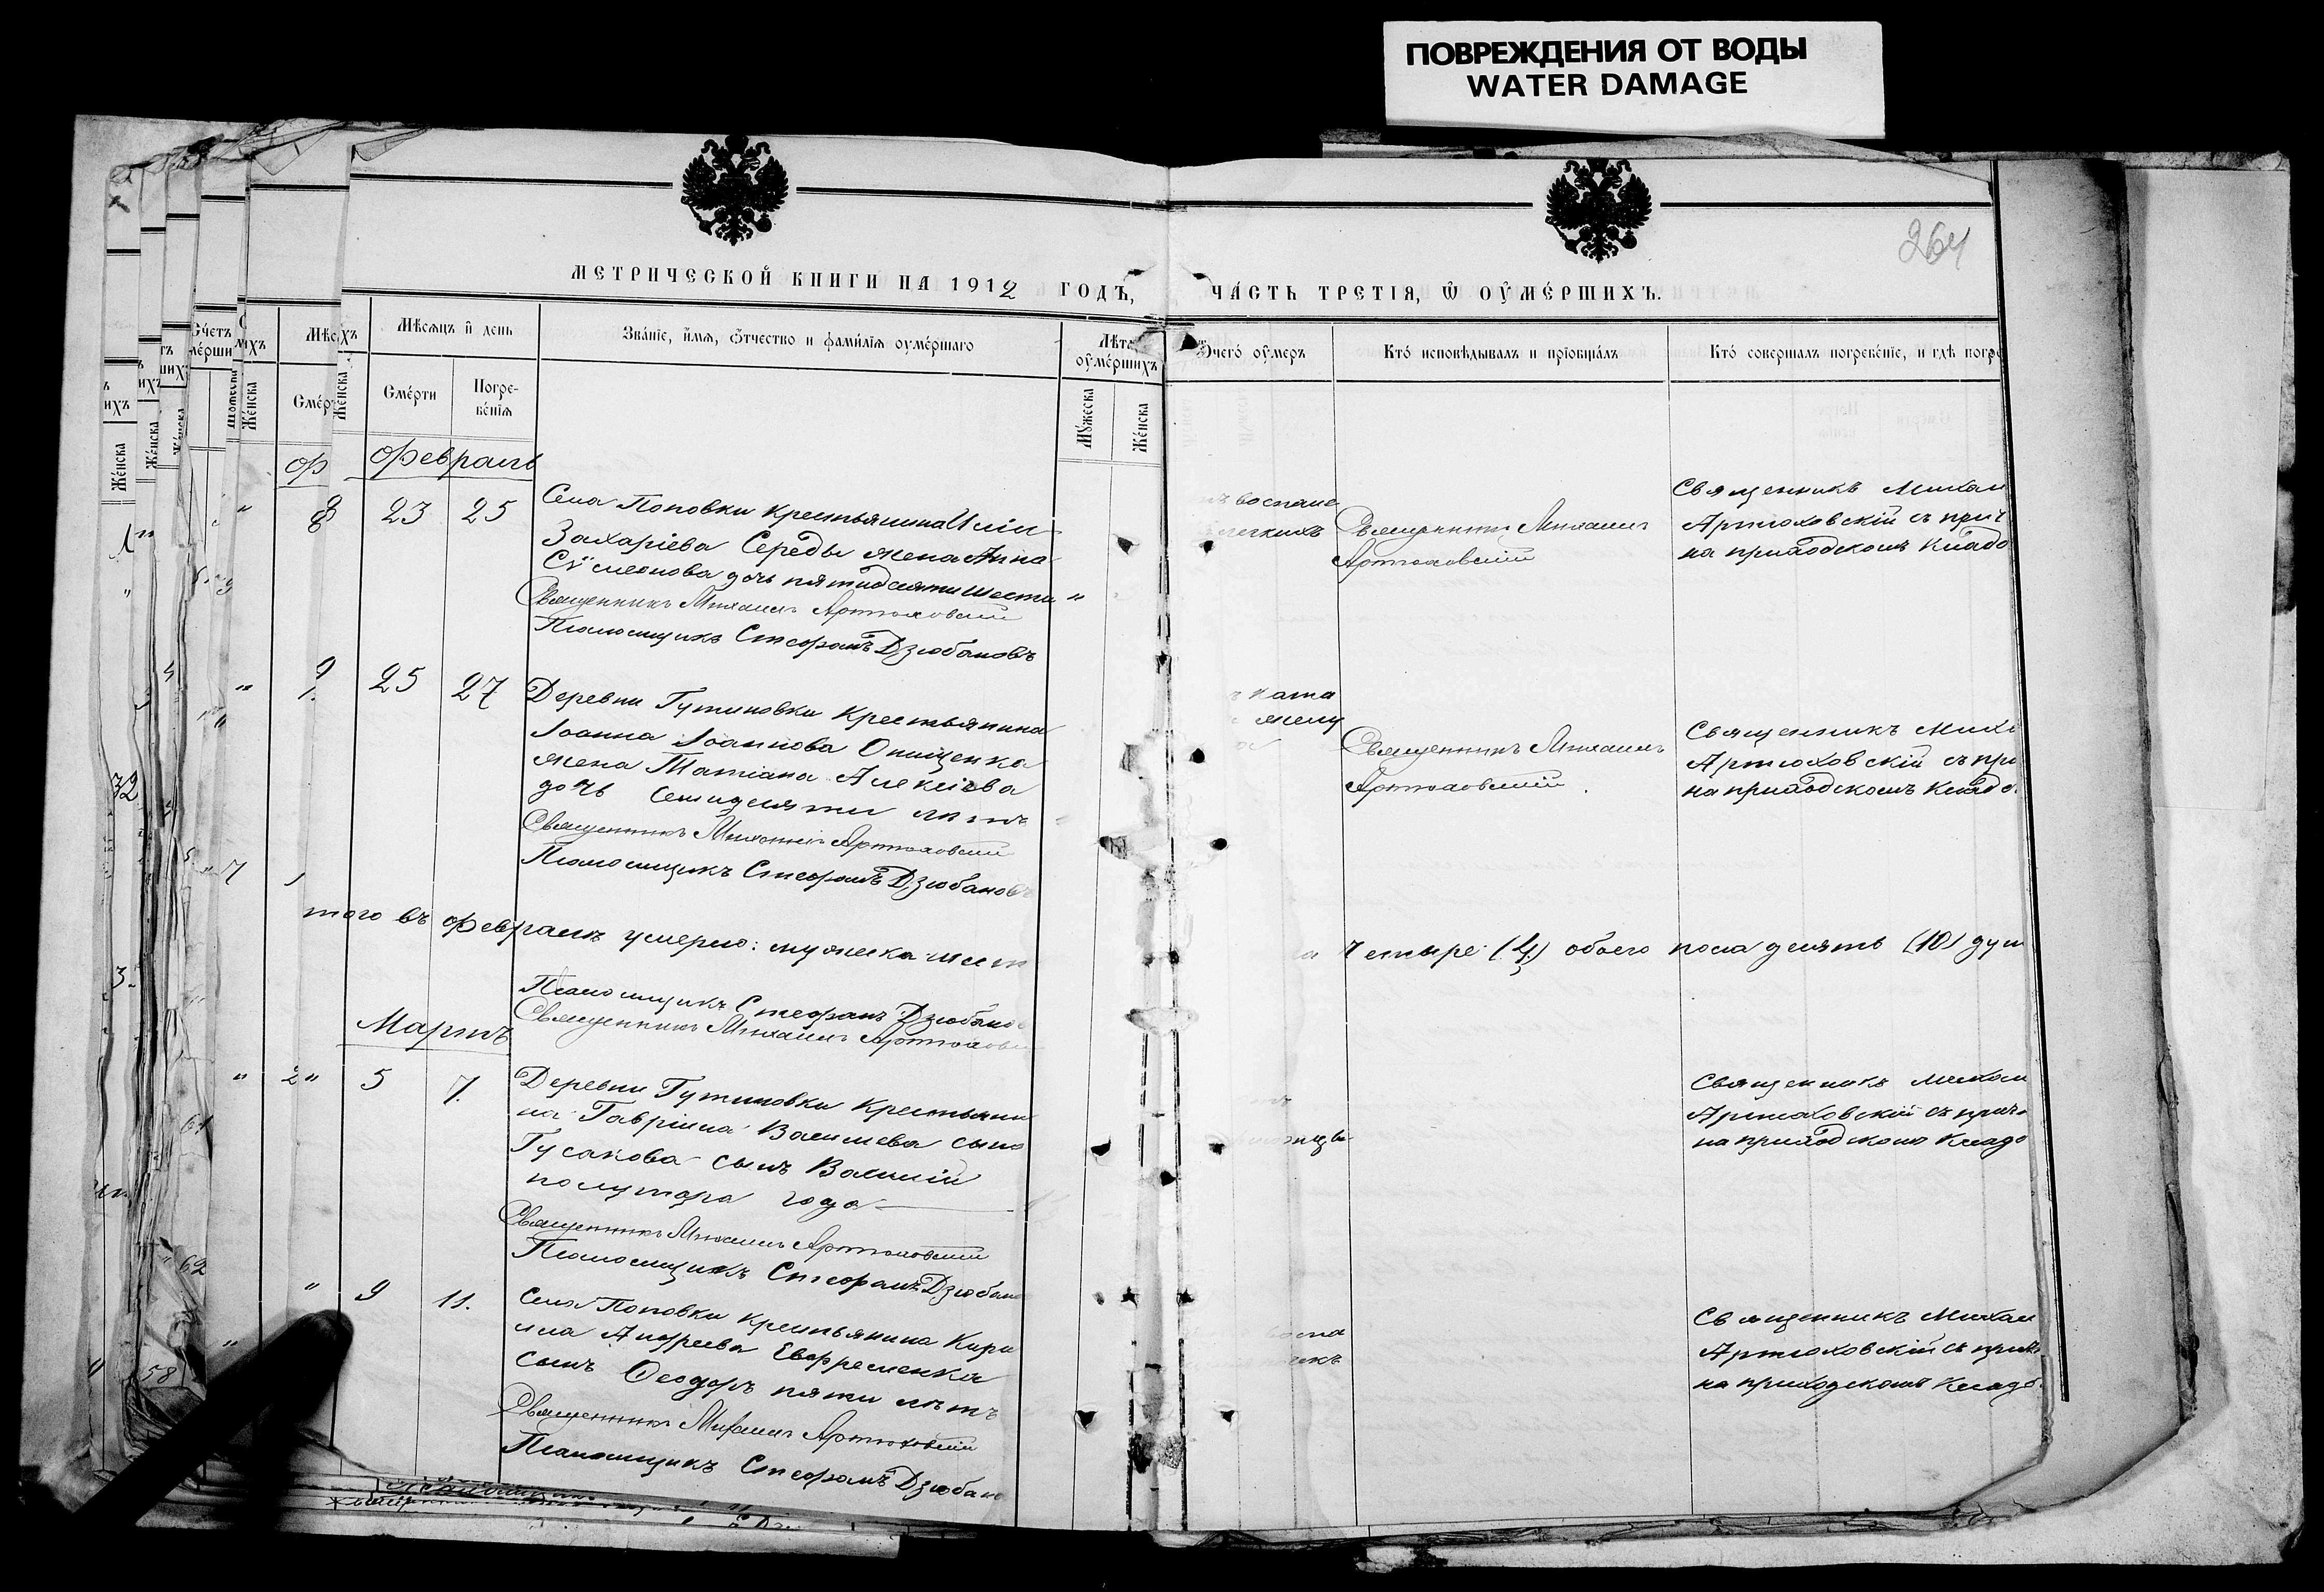 ПОВРЕЖДЕНИЯ ОТ ВОДЫ
WATER DAMAGE
264
МЕТРИЧЕСКОЙ КНИГИ НА 1912 ГОДЪ,
ЧАСТЬ ТРЕТІЯ, Ѿ ОУМЕРШИХЪ.
Мѣсяцъ и день
Званіе, имя, отчество и фамилія оумершаго
Лѣта оумершихъ
Ѿчего оумеръ
Кто исповѣдывалъ и пріобщалъ
Кто совершалъ погребеніе, и гдѣ погре
Смерти
Погре-
бенія
Мужеска
Женска
Февраль
23 25
Села Поповки крестьянина Иліи
Захаріева Середы жена Анна
Сѵмеонова дочь пятидесяти шести "
Священникъ Михаилъ Артюховскій
Псаломщикъ Стефанъ Дзюбановъ
воспале
легкихъ
Священникъ Михаилъ
Артюховскій
Священникъ Михаи
Артюховскій съ прич
на приходскомъ Кладб
25 27
Деревни Гутиновки Крестьянина
Іоанна Іоаннова Онищенка
жена Татіана Алексіева
дочь семидесяти лѣтъ
Священникъ Михаилъ Артюховскій
Псаломщикъ Стефанъ Дзюбановъ
ката
желу
Священникъ Михаилъ
Артюховскій
Священникъ Миха
Артюховскій съ при
на приходскомъ Кладб
того въ Февралѣ умерло: мужеска шест
Четыре (4) обоего пола десять (10) душ
Псаломщикъ Стефанъ Дзюбано
Священникъ Михаилъ Артюховс
Мартъ
" 2 " 5 7.
Деревни Гутиновки Крестьяни
на Гавріила Васильева сына
Гусакова сынъ Василій
полутора года
Священникъ Михаилъ Артюховскій
Псаломщикъ Стефанъ Дзюбан
Священникъ Михаи
Артюховскій съ прич
на приходскомъ Кладб
" 9 11.
Села Поповки Крестьянина Кири
лла Андреева Евфременка
сынъ Ѳеодоръ пяти лѣтъ
Священникъ Михаилъ Артюховскій
Псаломщикъ Стефанъ Дзюбан
Священникъ Михаи
Артюховскій съ прич
на приходскомъ Кладб